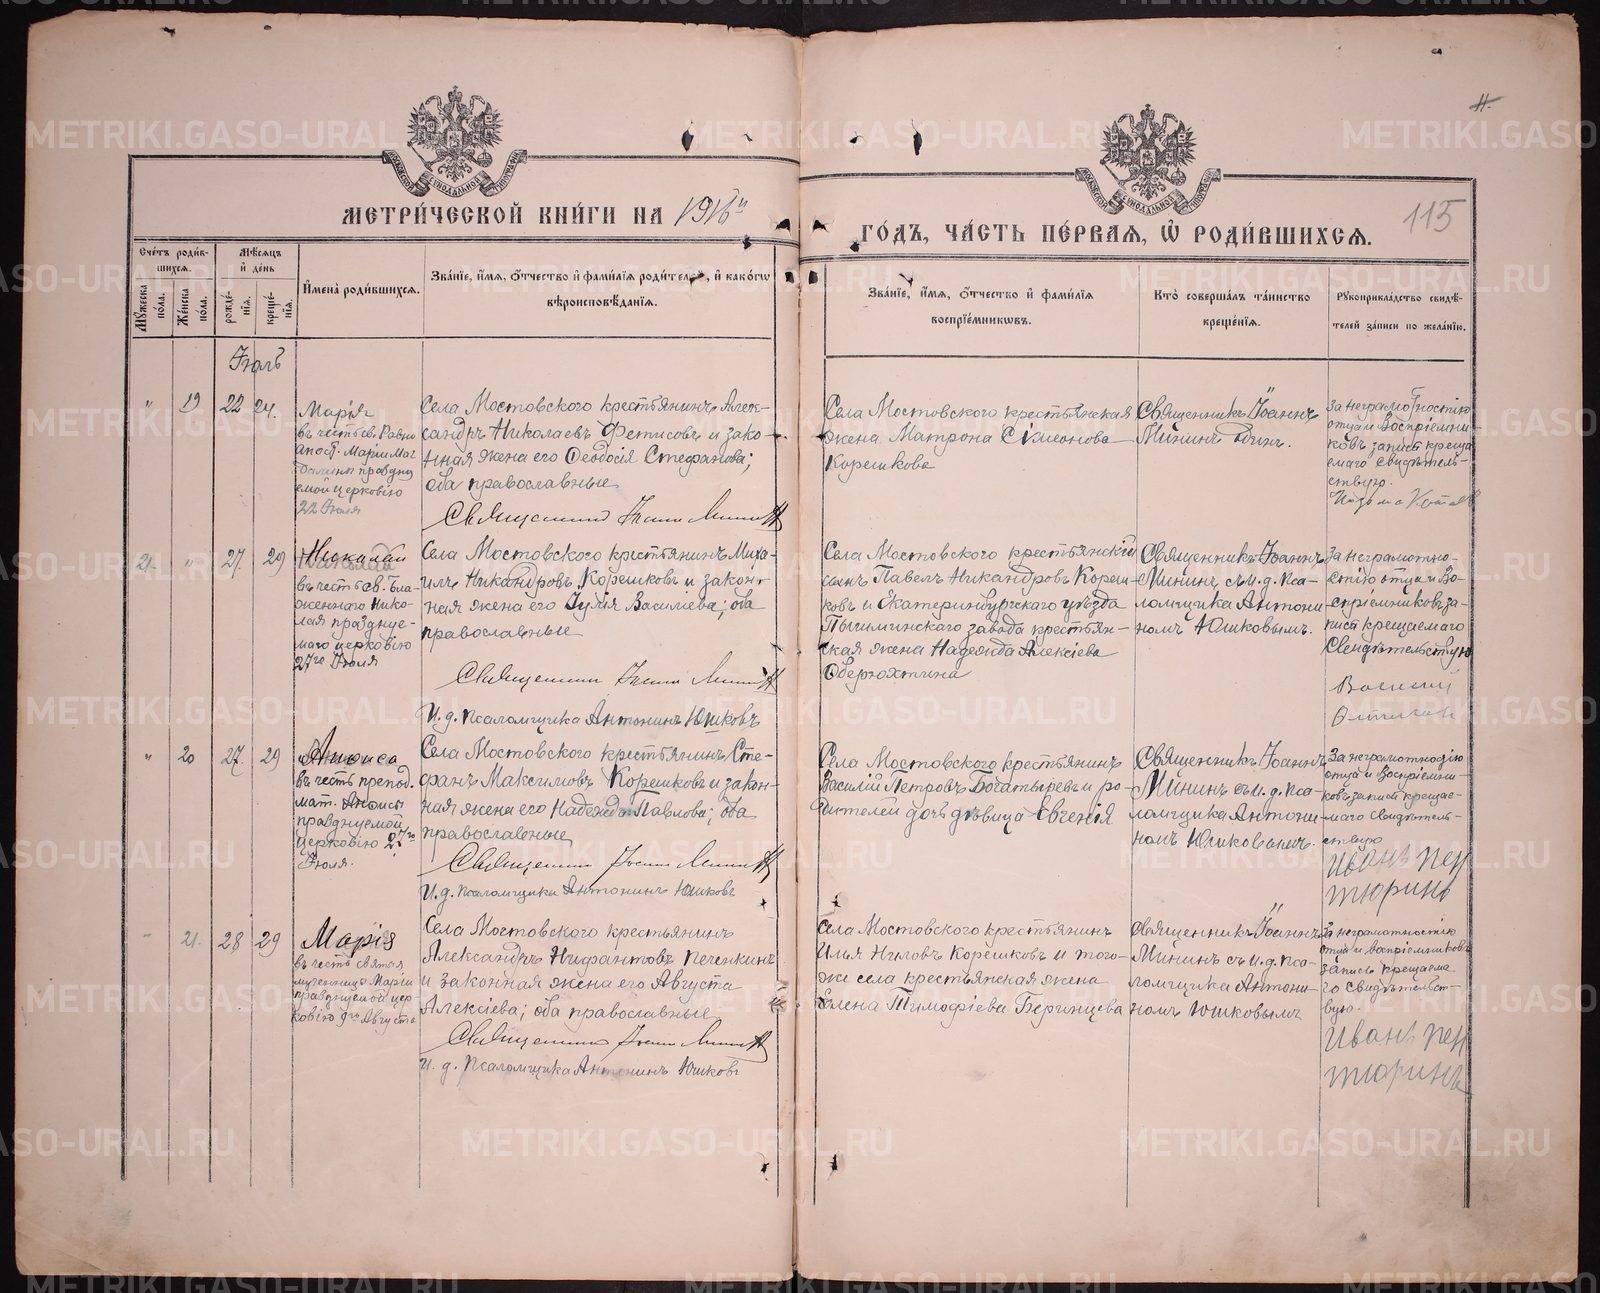 МЕТРИ́ЧЕСКОЙ КНИ́ГИ НА 1916й
ГО́ДЪ, ЧА́СТЬ ПЕ́РВАЯ, Ѡ҆ РОДИ́ВШИХСЯ.
115
Сче́тъ роди́в-
шихся.
Мѣ́сяцъ
и҆ де́нь
Му́жеска по́ла.
Же́нска по́ла.
рожде́нїя.
креще́нїя.
И҆мена̀ роди́вшихся.
Зва́нїе, и҆́мя, ѻ҆́тчество и҆ фами́лїя роди́телей, и҆ како́гѡ
вѣроисповѣ́данїя.
Зва́нїе, и҆́мя, ѻ҆́тчество и҆ фами́лїя
воспрїе́мникѡвъ.
Кто̀ соверша́лъ та́инство
креще́нїя.
Рꙋкоприкла́дство свидѣ́-
телей за́писи по жела́нїю.
Іюль
" 19 22 24.
Марія
въ честь св. Равно
апост. Маріи Маг
далины праздну
емой церковію
22 Іюля
Села Мостовского крестьянинъ Алек-
сандръ Николаевъ Фетисовъ и зако-
нная жена его Ѳеодосія Стефанова;
оба православные
Священникъ Іоаннъ Мининъ
Села Мостовского крестьянская
жена Матрона Сімеонова
Корешкова
Священникъ Іоаннъ
Мининъ Одинъ.
За неграмотностію
отца и Воспріемни-
ковъ запись креща
емаго свидѣтель-
ствую.
21. " 27. 29
Николай
въ честь св. Бла-
женнаго Нико-
лая празднуе-
маго церковію
27го Іюля
Села Мостовского крестьянинъ Миха-
илъ Никандровъ Корешковъ и закон-
ная жена его Іулія Василіева; оба
православные
Священникъ Іоаннъ Мининъ
И. д. псаломщика Антонинъ Юшковъ
Села Мостовского крестьянскій
сынъ Павелъ Никандровъ Кореш-
ковъ и Екатеринбургскаго уѣзда
Пышминскаго завода крестьян-
ская жена Надежда Алексіева
Оберюхтина
Священникъ Іоаннъ
Мининъ съ и. д. пса-
ломщика Антони-
номъ Юшковымъ.
За неграмотно-
стію отца и Во-
спріемниковъ за-
пись крещаемаго
Свидѣтельствую
Василій
" 20 27. 29
Анѳиса
въ честь препод.
мат. Анѳисы
празднуемой
церковію 27го
Іюля.
Села Мостовского крестьянинъ Сте-
фанъ Максимовъ Корешковъ и закон-
ная жена его Надежда Павлова; оба
православные
Священникъ Іоаннъ Мининъ
И. д. псаломщика Антонинъ Юшковъ
Села Мостовского крестьянинъ
Василій Петровъ Богатыревъ и ро-
дителей дочь дѣвица Евгенія
Священникъ Іоаннъ
Мининъ съ и. д. пса-
ломщика Антони-
номъ Юшковымъ.
За неграмотностію
отца и Воспріемни-
ковъ запись крещае-
маго свидѣтель-
ствую
Иванъ Пен
тюринъ
" 21. 28 29
Марія
въ честь святой
мученицы Маріи
празднуемой цер
ковію 9го Августа
Села Мостовского крестьянинъ
Александръ Нифантовъ Печенкинъ
и законная жена его Августа
Алексіева; оба православные
Священникъ Іоаннъ Мининъ
И. д. псаломщика Антонинъ Юшковъ
Села Мостовского крестьянинъ
Илья Ниловъ Корешковъ и того-
же села крестьянская жена
Елена Тимофіева Беринцева
Священникъ Іоаннъ
Мининъ съ и. д. пса-
ломщика Антони-
номъ Юшковымъ
За неграмотностію
отца и воспріемниковъ
запись крещаема-
го свидѣтельст-
вую.
Иванъ Пен
тюринъ
METRIKI.GASO-URAL.RU